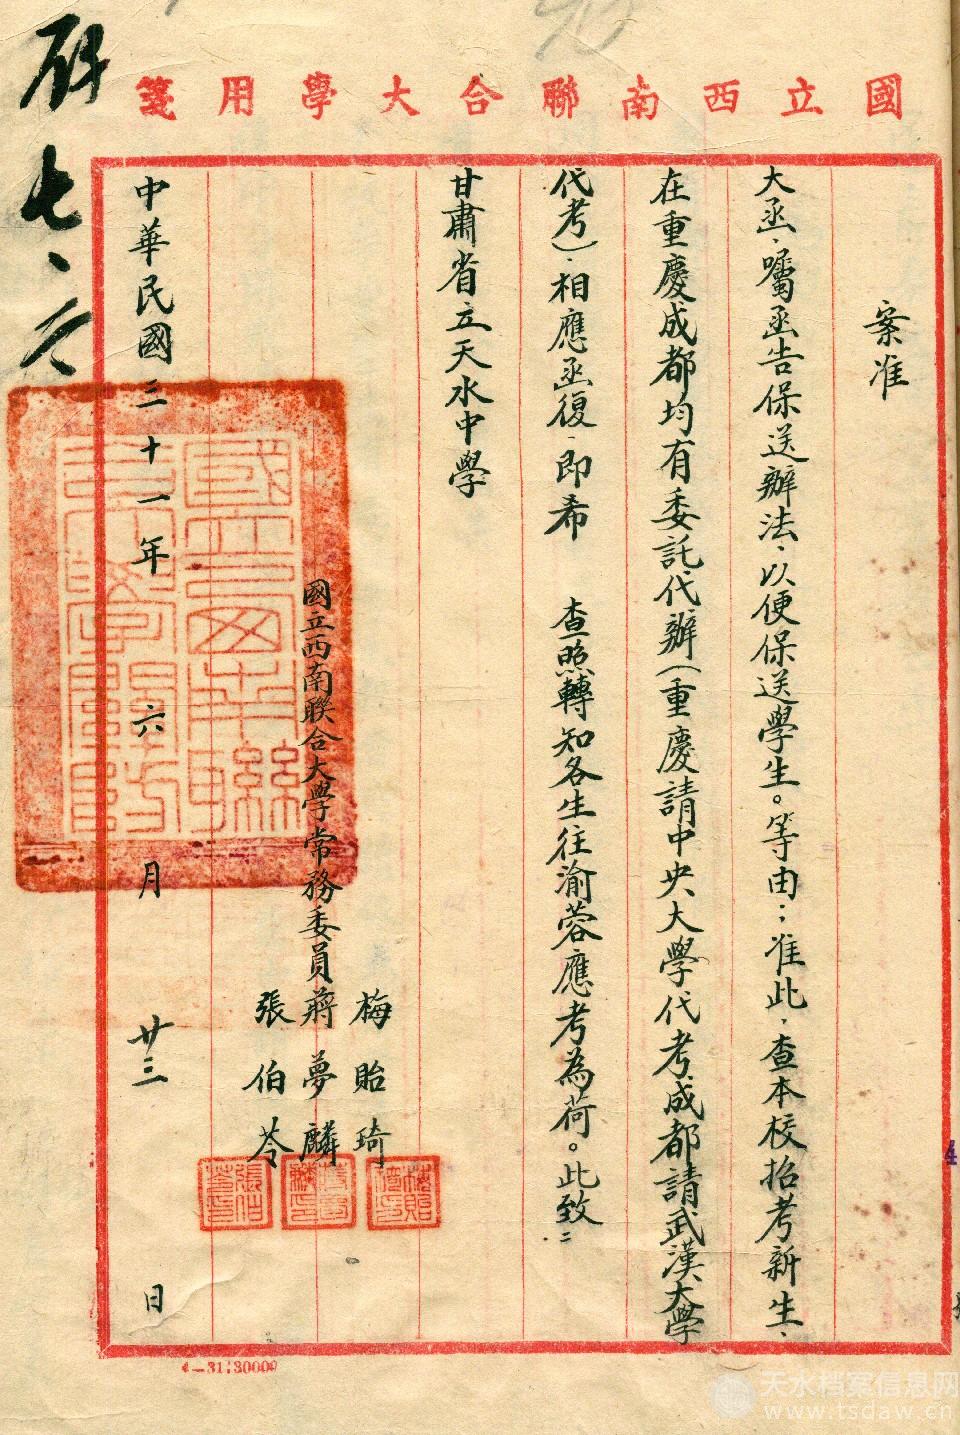 國立西南聯合大學用箋
案准
大函,囑函告保送辦法,以便保送學生。等由;准此,查本校招考新生,
在重慶成都均有委託代辦(重慶請中央大學代考成都請武漢大學
代考),相應函復,即希 查照轉知各生往渝蓉應考為荷。此致:
甘肅省立天水中學
國立西南联合大學常務委員
梅貽琦
蔣夢麟
張伯苓
中華民國三十一年 六 月 廿三 日
4—31:30000
天水档案信息网
www.tsdaw.cn